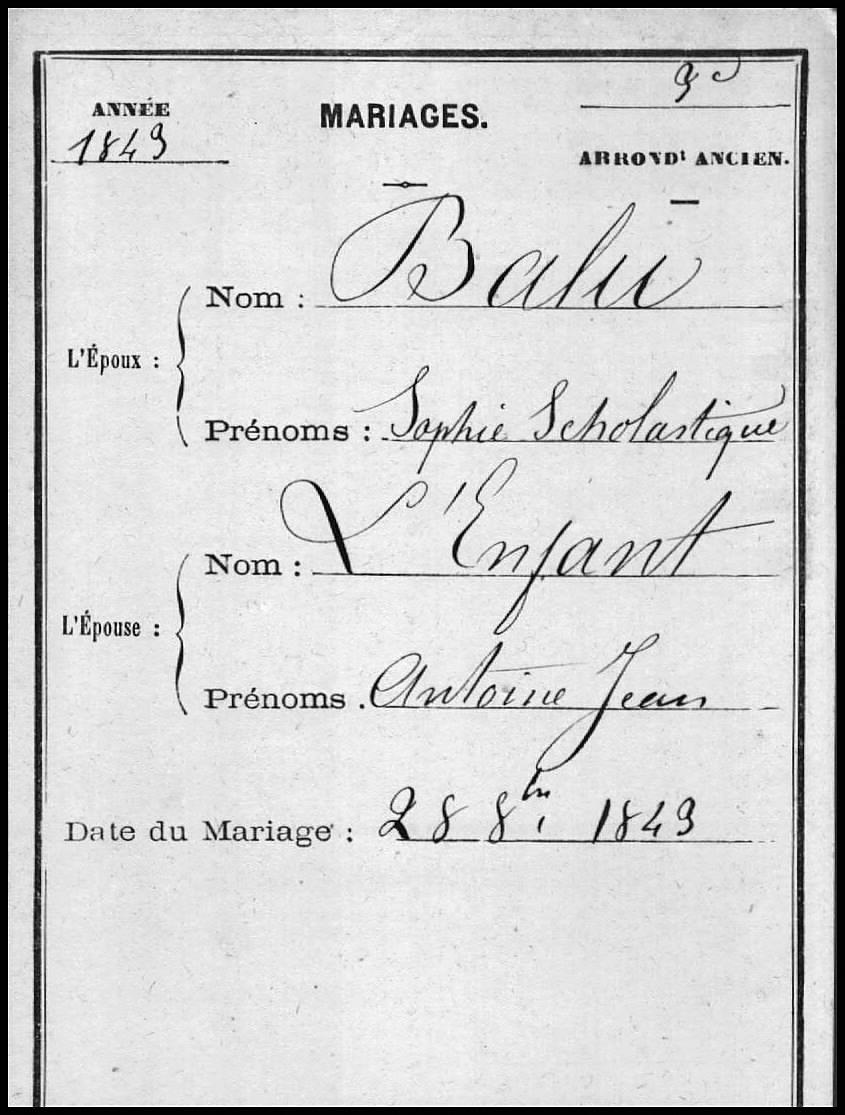 3e
ANNÉE MARIAGES.
1843
ARRONDt ANCIEN.
L'Époux :
Nom : Balu
Prénoms : Sophie Scholastique
L'Épouse :
Nom : L'Enfant
Prénoms . Antoine Jean
Date du Mariage : 28 8bre 1843